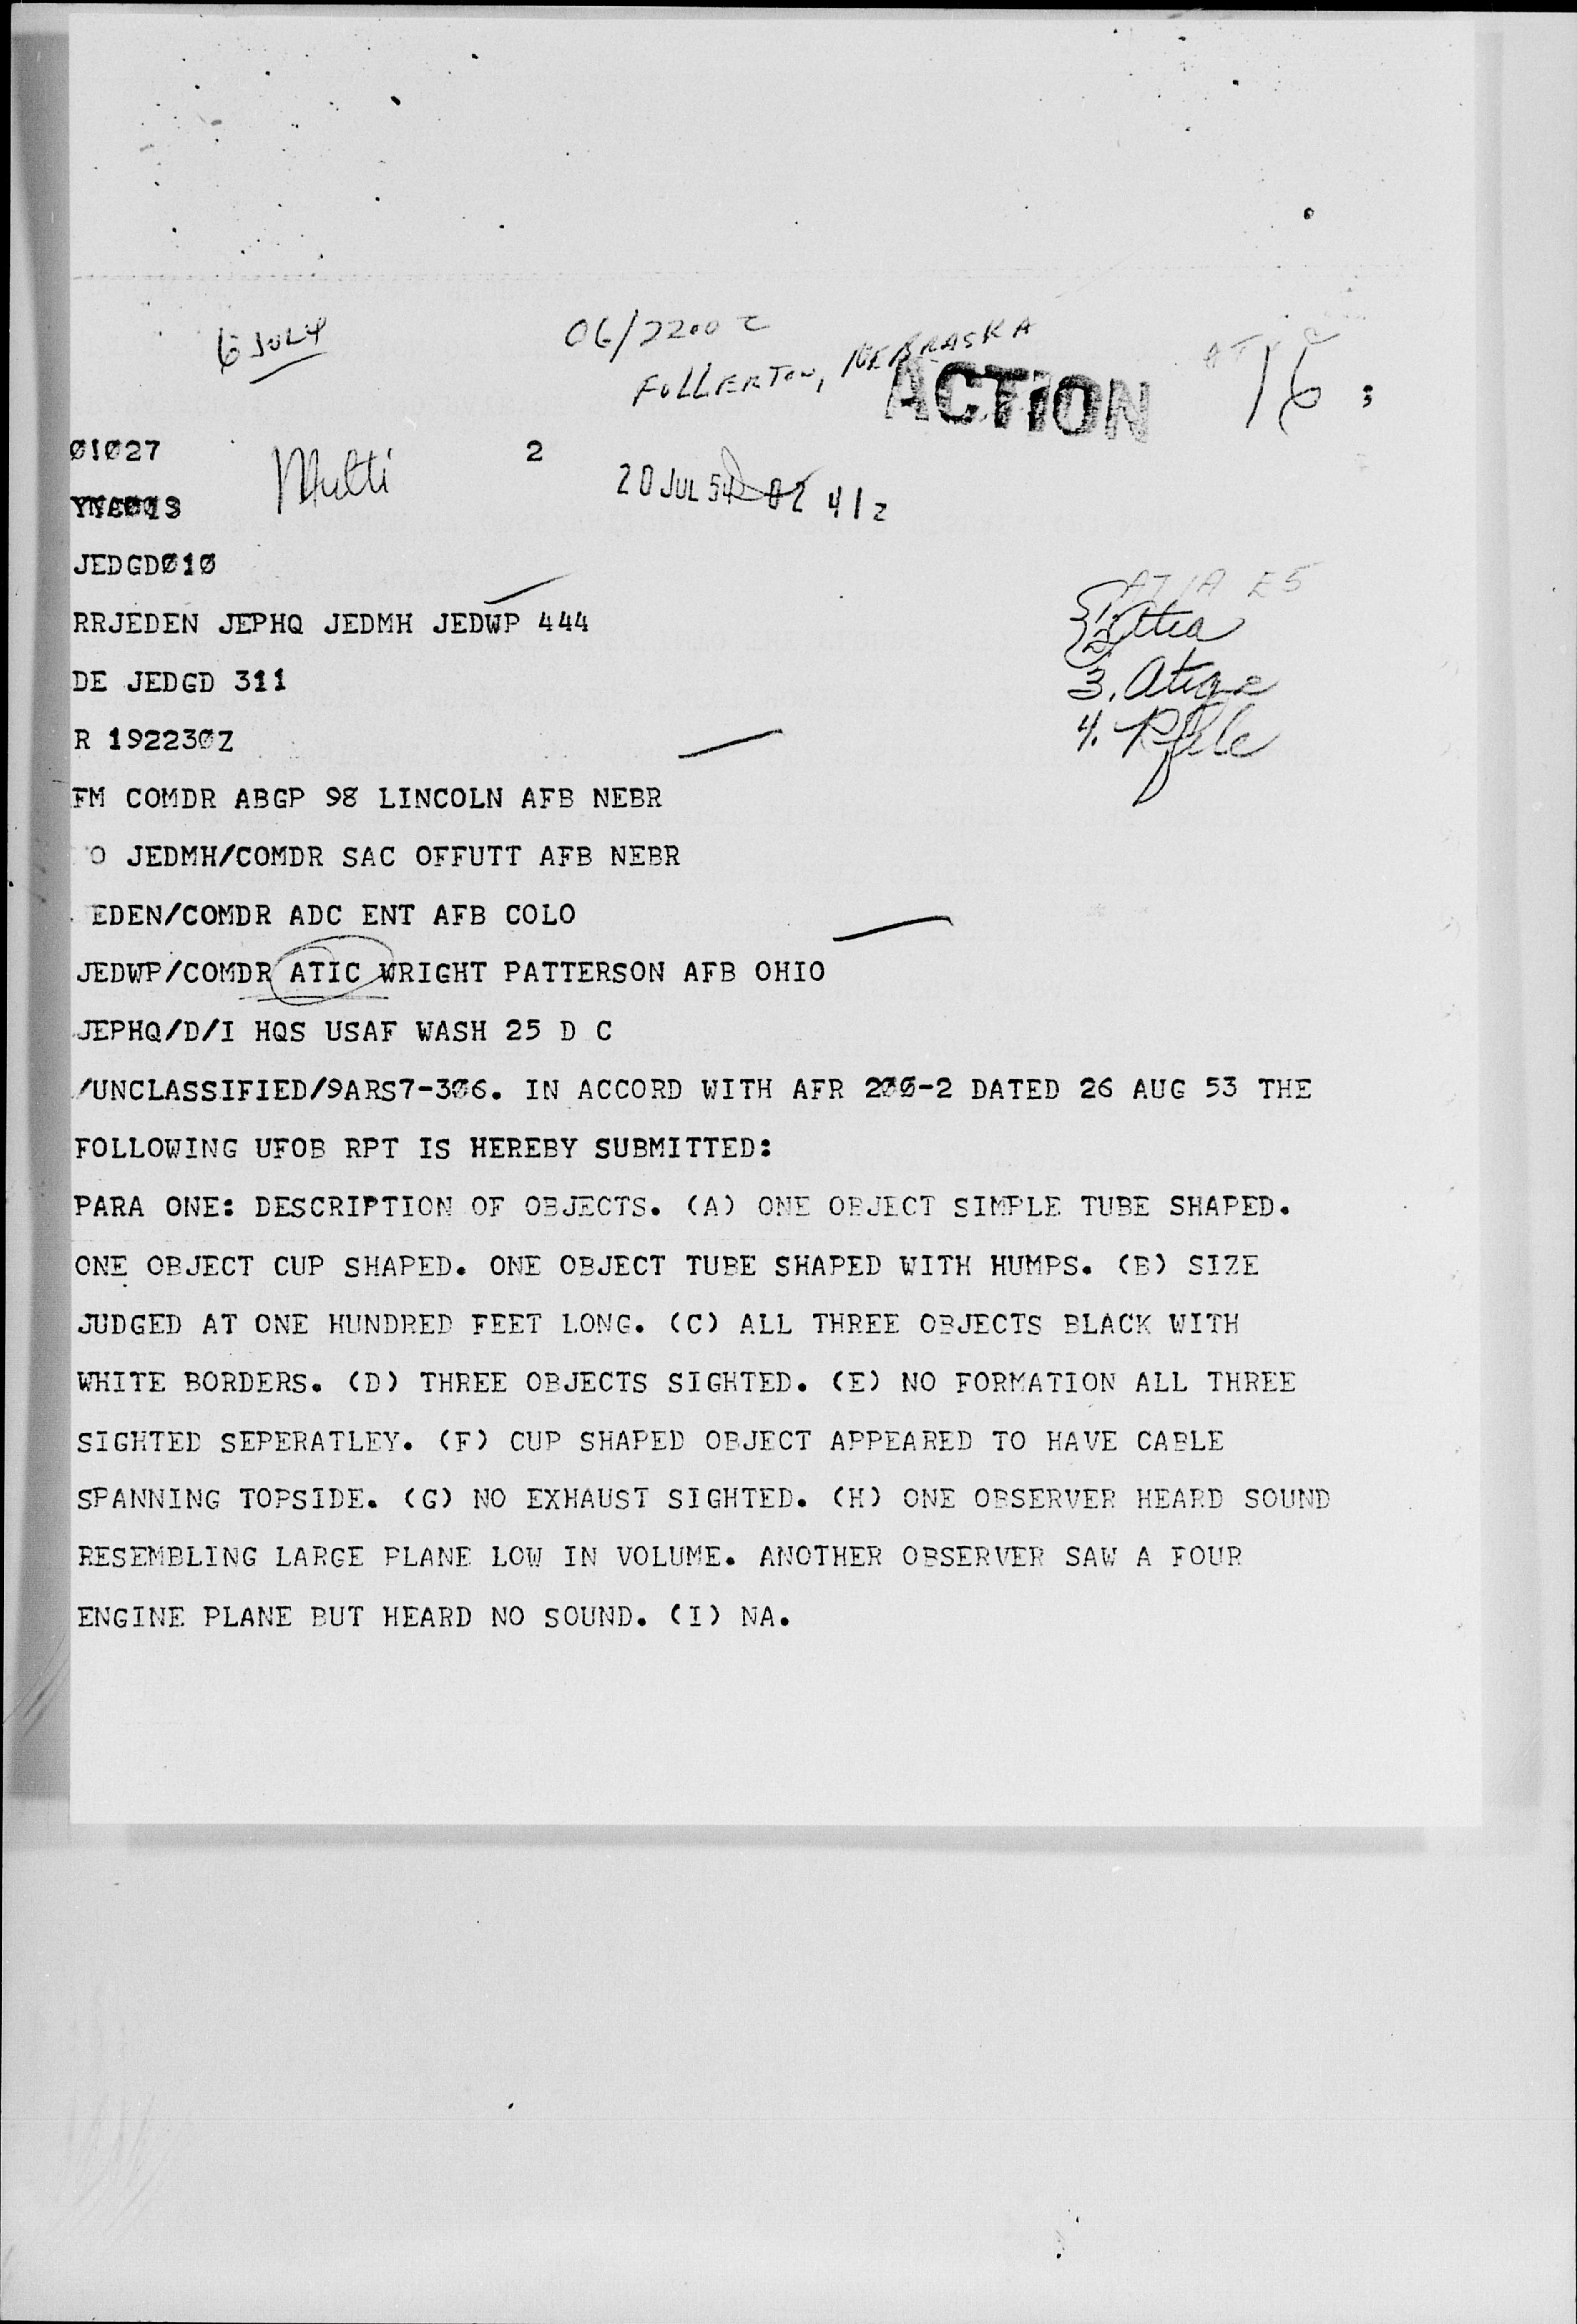 6 JULY
06/2200 Z
FULLERTON, NEBRASKA
ACTION
01027
Multi
2
20 JUL 54 02 41z
JEDGDØ1Ø
RRJEDEN JEPHQ JEDMH JEDWP 444
DE JEDGD 311
R 19223ØZ
3. Atige
4. Rfile
FM COMDR ABGP 98 LINCOLN AFB NEBR
O JEDMH/COMDR SAC OFFUTT AFB NEBR
EDEN/COMDR ADC ENT AFB COLO
JEDWP/COMDR ATIC WRIGHT PATTERSON AFB OHIO
JEPHQ/D/I HQS USAF WASH 25 D C
/UNCLASSIFIED/9ARS7-3Ø6. IN ACCORD WITH AFR 2ØØ-2 DATED 26 AUG 53 THE
FOLLOWING UFOB RPT IS HEREBY SUBMITTED:
PARA ONE: DESCRIPTION OF OBJECTS. (A) ONE OBJECT SIMPLE TUBE SHAPED.
ONE OBJECT CUP SHAPED. ONE OBJECT TUBE SHAPED WITH HUMPS. (B) SIZE
JUDGED AT ONE HUNDRED FEET LONG. (C) ALL THREE OBJECTS BLACK WITH
WHITE BORDERS. (D) THREE OBJECTS SIGHTED. (E) NO FORMATION ALL THREE
SIGHTED SEPERATLEY. (F) CUP SHAPED OBJECT APPEARED TO HAVE CABLE
SPANNING TOPSIDE. (G) NO EXHAUST SIGHTED. (H) ONE OBSERVER HEARD SOUND
RESEMBLING LARGE PLANE LOW IN VOLUME. ANOTHER OBSERVER SAW A FOUR
ENGINE PLANE BUT HEARD NO SOUND. (I) NA.